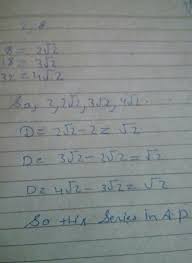 2, 8
8 = 2√2
18 = 3√2
32 = 4√2
So, 2, 2√2, 3√2, 4√2.
D = 2√2 - 2 = √2
D = 3√2 - 2√2 = √2
D = 4√2 - 3√2 = √2
So this Series in A.P